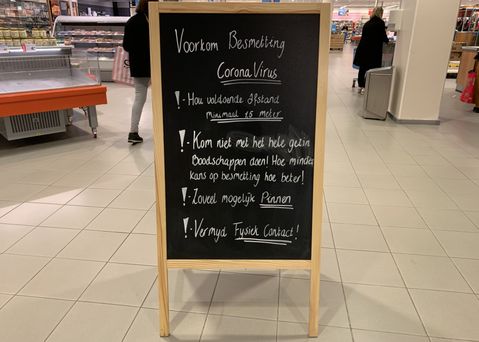 Voorkom Besmetting
Corona Virus
!· Hou voldoende Afstand
minimaal 1.5 meter
!· Kom niet met het hele gezin
Boodschappen doen! Hoe minder
kans op besmetting hoe beter!
!· Zoveel mogelijk Pinnen
!· Vermyd Fysiek Contact!